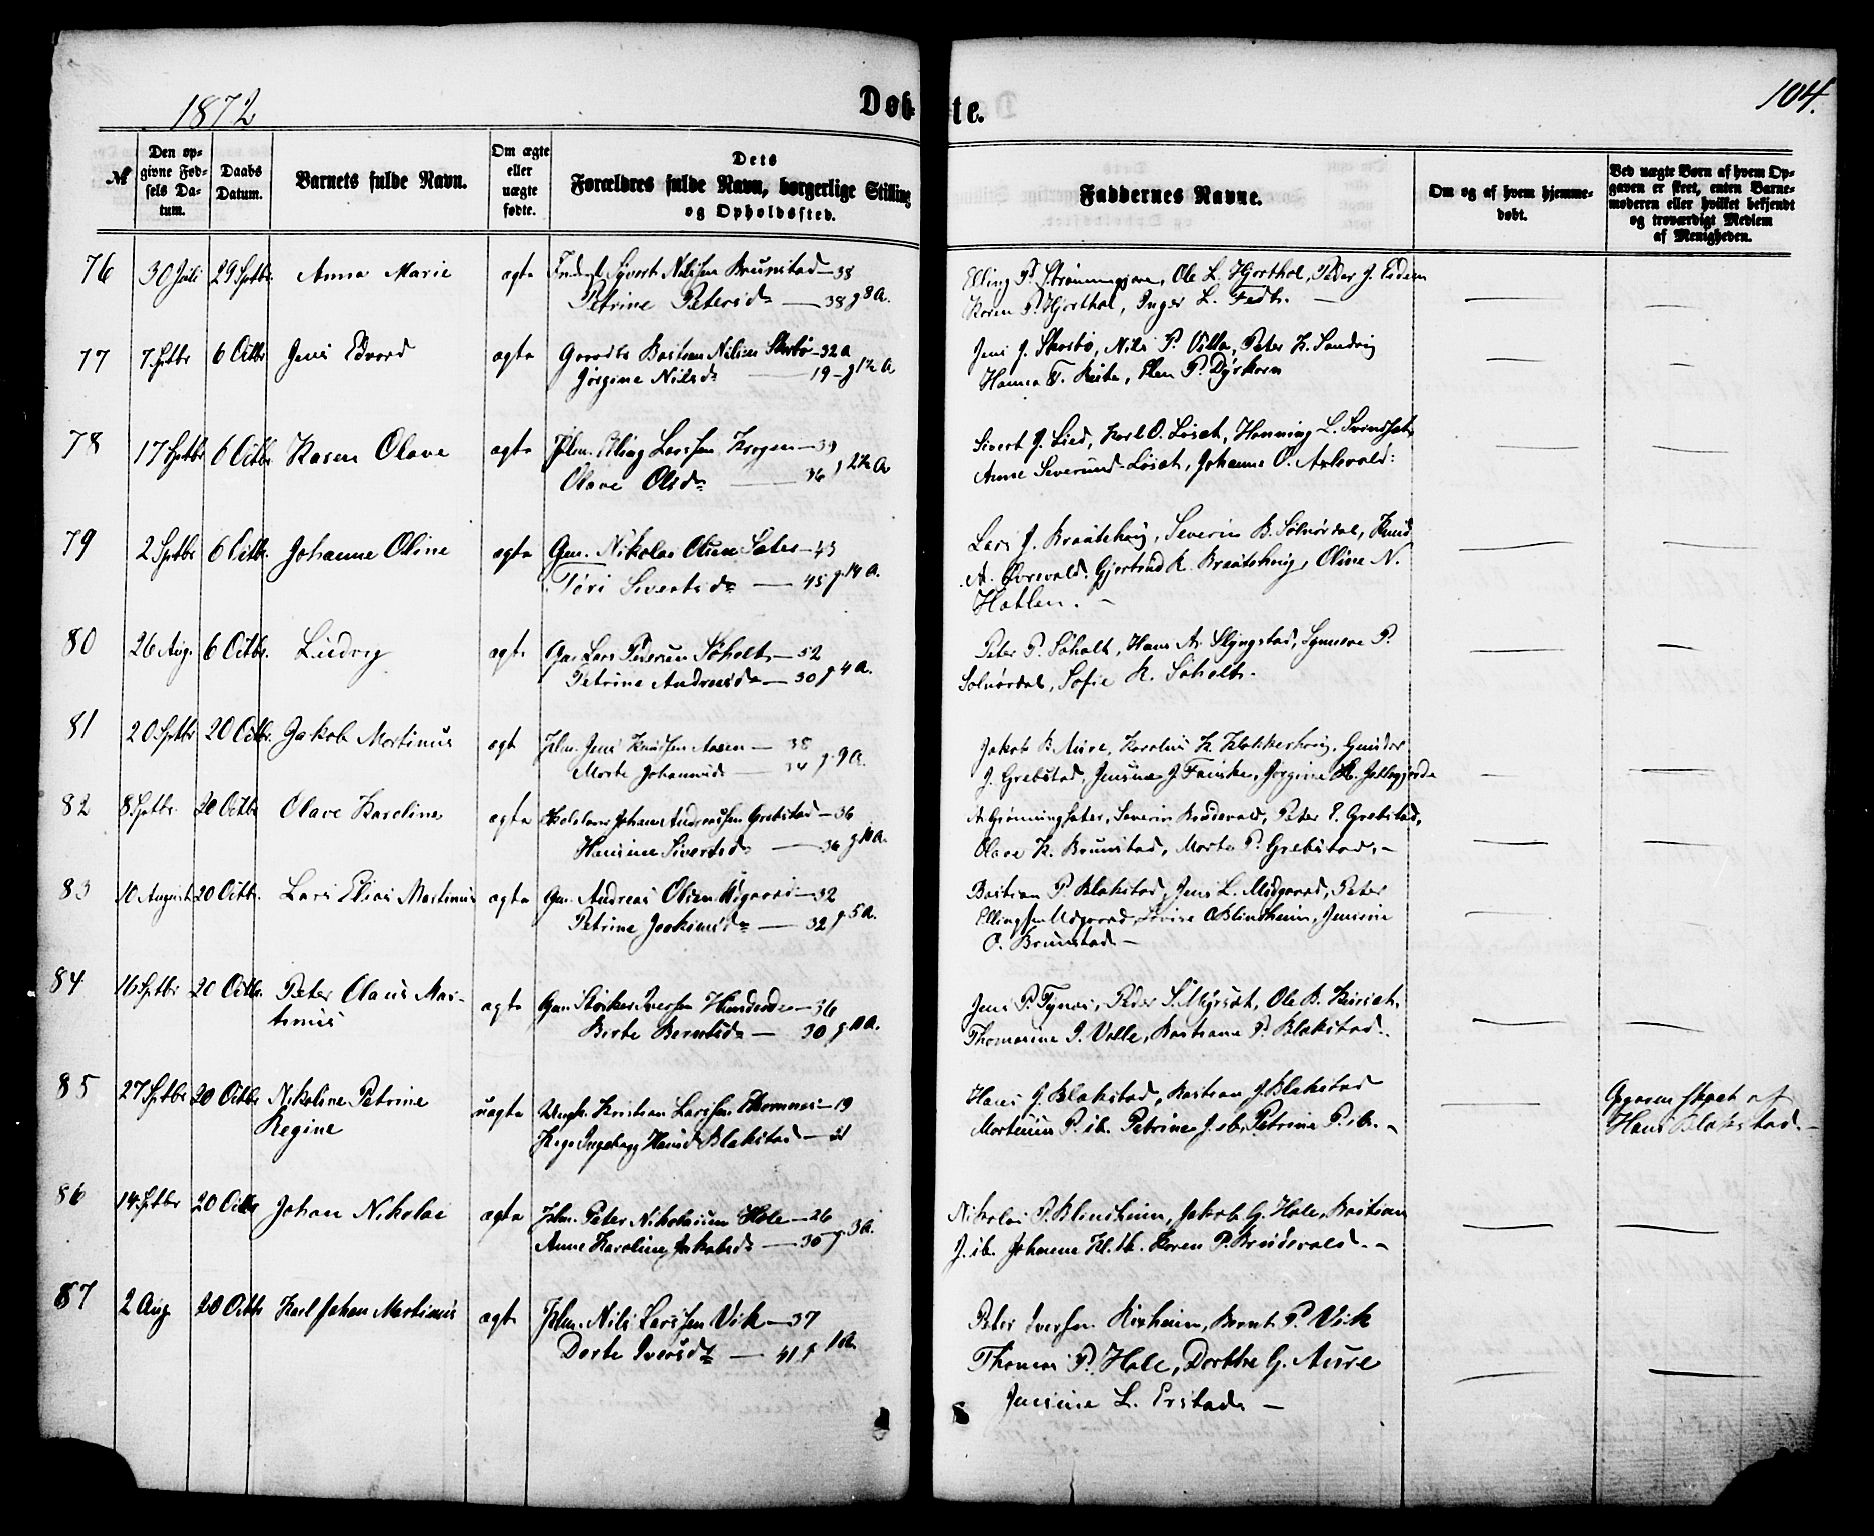 1872
Døbte.
104.
№
Den opgivne Fødsels Datum.
Daabs Datum.
Barnets fulde Navn.
Om ægte eller uægte fødte.
Dets Forældres fulde Navn, borgerlige Stilling og Opholdssted.
Faddernes Navne.
Om og af hvem hjemmedøbt.
Ved uægte Børn af hvem Opgaven er skeet, enten Barnemoderen eller hvilket bekjendt og troværdigt Medlem af Menigheden.
76 30 Juli 29 Sptbr. Anna Marie ægte Sivert Nilssen Brunstad — 38
Petrine Petersd. — 38 g 8 A.
Elling P. Strømmegjære, Ole L. Hjorthol, Peder J.
Karen P. Hjorthol, Inger L. —
77 7 Sptbr 6 Octbr Jens Edvard ægte Bastian Nilsen Skorbø — 32 A
Jørgine Nilsd. — 19 — g 1½ A
Jens J. Skorbø, Nils P. Villa, Peter K. Sandvig
Hanna T. Elen P. Dyrkorn
78 17 Sptbr 6 Octbr Karen Olave ægte Larssen Krogen — 39
Olave Olsd. — 36 g 2½ A
Sivert J. Lied, Karl O. Løset, Henning L.
Anne Løset, Johanne O.
79 2 Sptbr 6 Octbr. Johanne Oline ægte Gm. Nikolai Olsen Sæter — 43
Tøri Sivertsd. — 45 g. 14 A.
Lars J. Braütehoug, Severin B. Solnørdal, Knud
A. Gjertrud K. Braütehoug, Oline N.
Hatlen. —
80 26 Aug. 6 Octbr. Ludvig ægte Lars Pedersen Søholt — 52
Petrine Andreasd. — 30 g 4 A.
Peter P. Søholt, Hans A. Slyngstad, Synneve P.
Solnørdal, Sofie K. Søholt.
81 20 Sptbr 20 Octbr. Jakob Martinus ægte Jens Knudsen Aasen — 38
Marte Johannesd. — 34 g. 9 A.
Jakob B. Aure, Karolus K. Klokkerhoug, Gunder
J. Grebstad, Jensine J. Fauske, Jørgine
82 8 Sptbr. 20 Octbr Olave Karoline ægte Johan Andreassen Grebstad — 36
Hansine Sivertsd. — 36 g 10 A.
A. Grønningsæter, Severin Brudevold, Peter E. Grebstad,
Olave K. Brunstad, Marte P. Grebstad, —
83 10 August 20 Octbr. Lars Elias Martinus ægte Gm. Andreas Olsen — 32
Petrine Joakimsd. — 32 g. 5 A.
Bastian P. Blakstad, Jens L. Midgaard, Peter
Ellingsen Lovise O. Blindheim, Jensine
O. Brunstad —
84 16 Sptbr 20 Octbr. Peter Olaus Martinus
ægte Gm. Størker Iversen — 36
Birte Berntsd. — 30 g. 10 A.
Jens P. Tynes, Peder S. Myrset, Ole B.
Thomasine J. Valle, Bastiane P. Blakstad.
85 27 Sptbr 20 Octbr Nikoline Petrine
Regine
uægte Ungk. Kristian Larssen — 19
Pige Ingeborg Hansd. Blakstad — 21
Hans J. Blakstad, Bastian J. Blakstad
P. ib. Petrine J. ib. Petrine P. ib. —
Opgaven skeet af
Hans Blakstad. —
86 14 Sptbr 20 Octbr Johan Nikolai ægte Peter Nikolaisen Hole — 26
Anne Karoline Jakobsd. — 30 g. 3 A.
Nikolai P. Blindheim, Jakob G. Hole, Bastian
J. ib. Johanne Kl. ib. Karen P. Brudevold. —
87 2 Aug 20 Octbr Karl Johan Martinus ægte Nils Larssen Vik — 37
Dorte Iversd. — 41 g 10 A.
Peter Iversen Bernt P. Vik
Thomas P. Hole, Dorthe G. Aure
Jensine L. Erstad. —